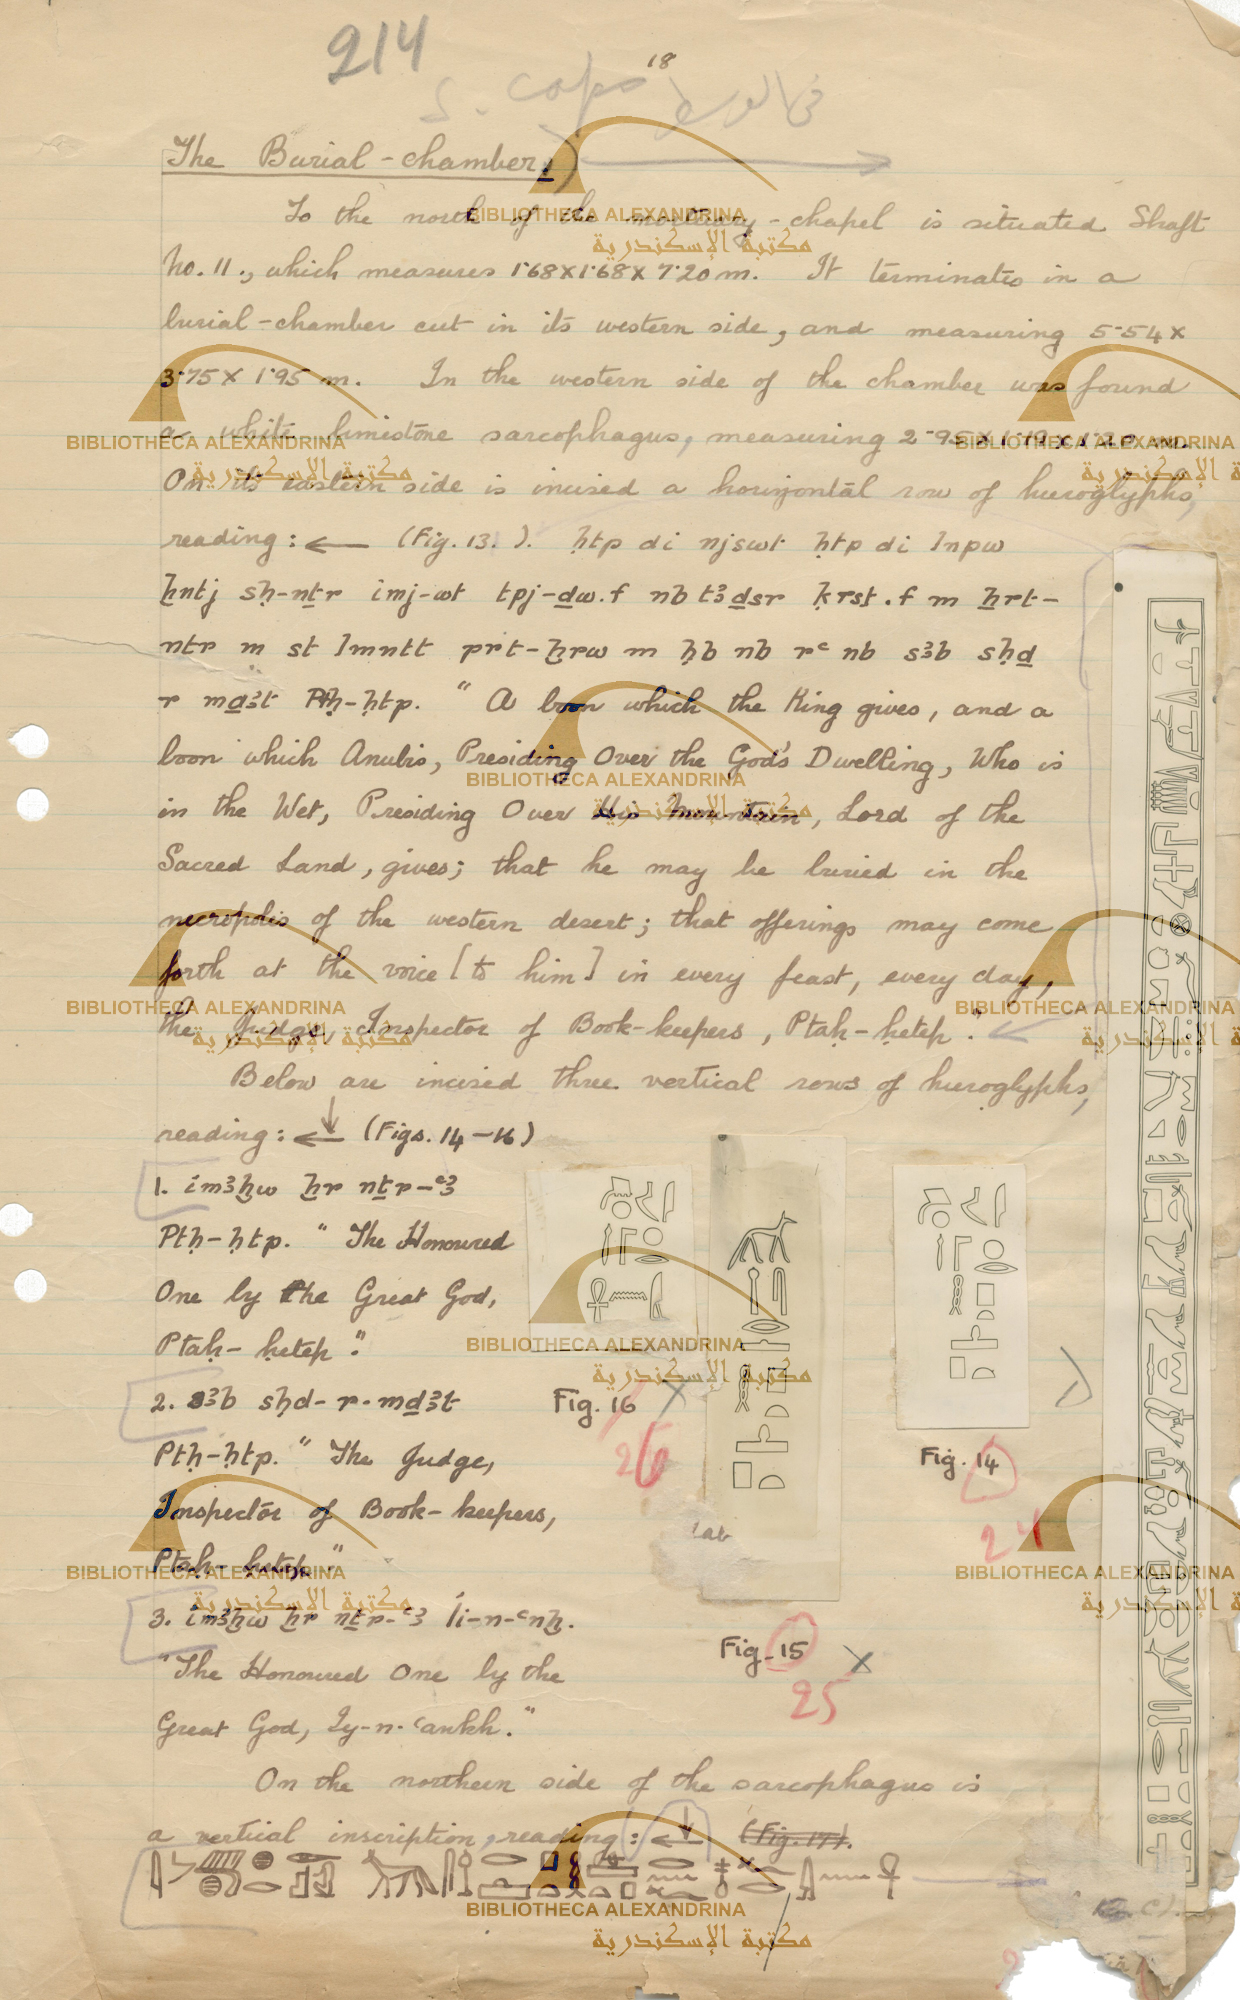 214
18
S. caps في الوسط
The Burial-chamber:
To the north of the mortuary-chapel is situated Shaft
No. 11., which measures 1·68 x 1·68 x 7·20 m. It terminates in a
burial-chamber cut in its western side, and measuring 5·54 x
3·75 x 1·95 m. In the western side of the chamber was found
a white limestone sarcophagus, measuring
On its eastern side is incised a horizontal row of hieroglyphs,
reading: ← (Fig. 13. ). ḥtp di njswt ḥtp di Inpw
ḫntj sḥ-nṯr imj-wt tpj-ḏw.f nb tꜣ ḏsr ḳrst.f m ẖrt-
nṯr m st Imntt prt-ḫrw m ḥb nb rꜥ nb sꜣb sḥḏ
r mḏꜣt Ptḥ-ḥtp. " A boon which the King gives, and a
boon which Anubis, Presiding Over the God's Dwelling, Who is
in the Wet, Presiding Over His Mountain, Lord of the
Sacred Land, gives; that he may be buried in the
necropolis of the western desert; that offerings may come
forth at the voice [to him] in every feast, every day,
the Judge, Inspector of Book-keepers, Ptaḥ-ḥetep." ←
Below are incised three vertical rows of hieroglyphs,
reading: ← ↓ (Figs. 14-16)
1. imꜣḫw ḫr nṯr-ꜥꜣ
Ptḥ-ḥtp. " The Honoured
One by the Great God,
Ptaḥ-ḥetep ".
2. sꜣb sḥḏ-r-mḏꜣt
Ptḥ-ḥtp. " The Judge,
Inspector of Book-keepers,
Ptaḥ-ḥetep "
3. imꜣḫw ḫr nṯr-ꜥꜣ Ii-n-ꜥnḫ.
"The Honoured One by the
Great God, Iy-n-ꜥankh."
Fig. 16
26
Fig. 14
24
Fig. 15
25
On the northern side of the sarcophagus is
a vertical inscription, reading: ← ↓ (Fig. 17).
BIBLIOTHECA ALEXANDRINA
مكتبة الإسكندرية